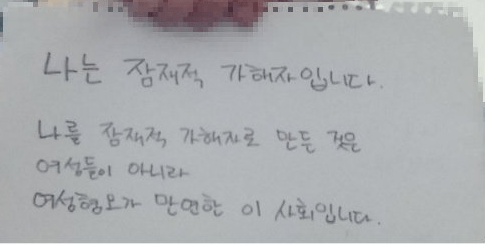 나는 잠재적 가해자입니다.
나를 잠재적 가해자로 만든 것은
여성들이 아니라
여성혐오가 만연한 이 사회입니다.